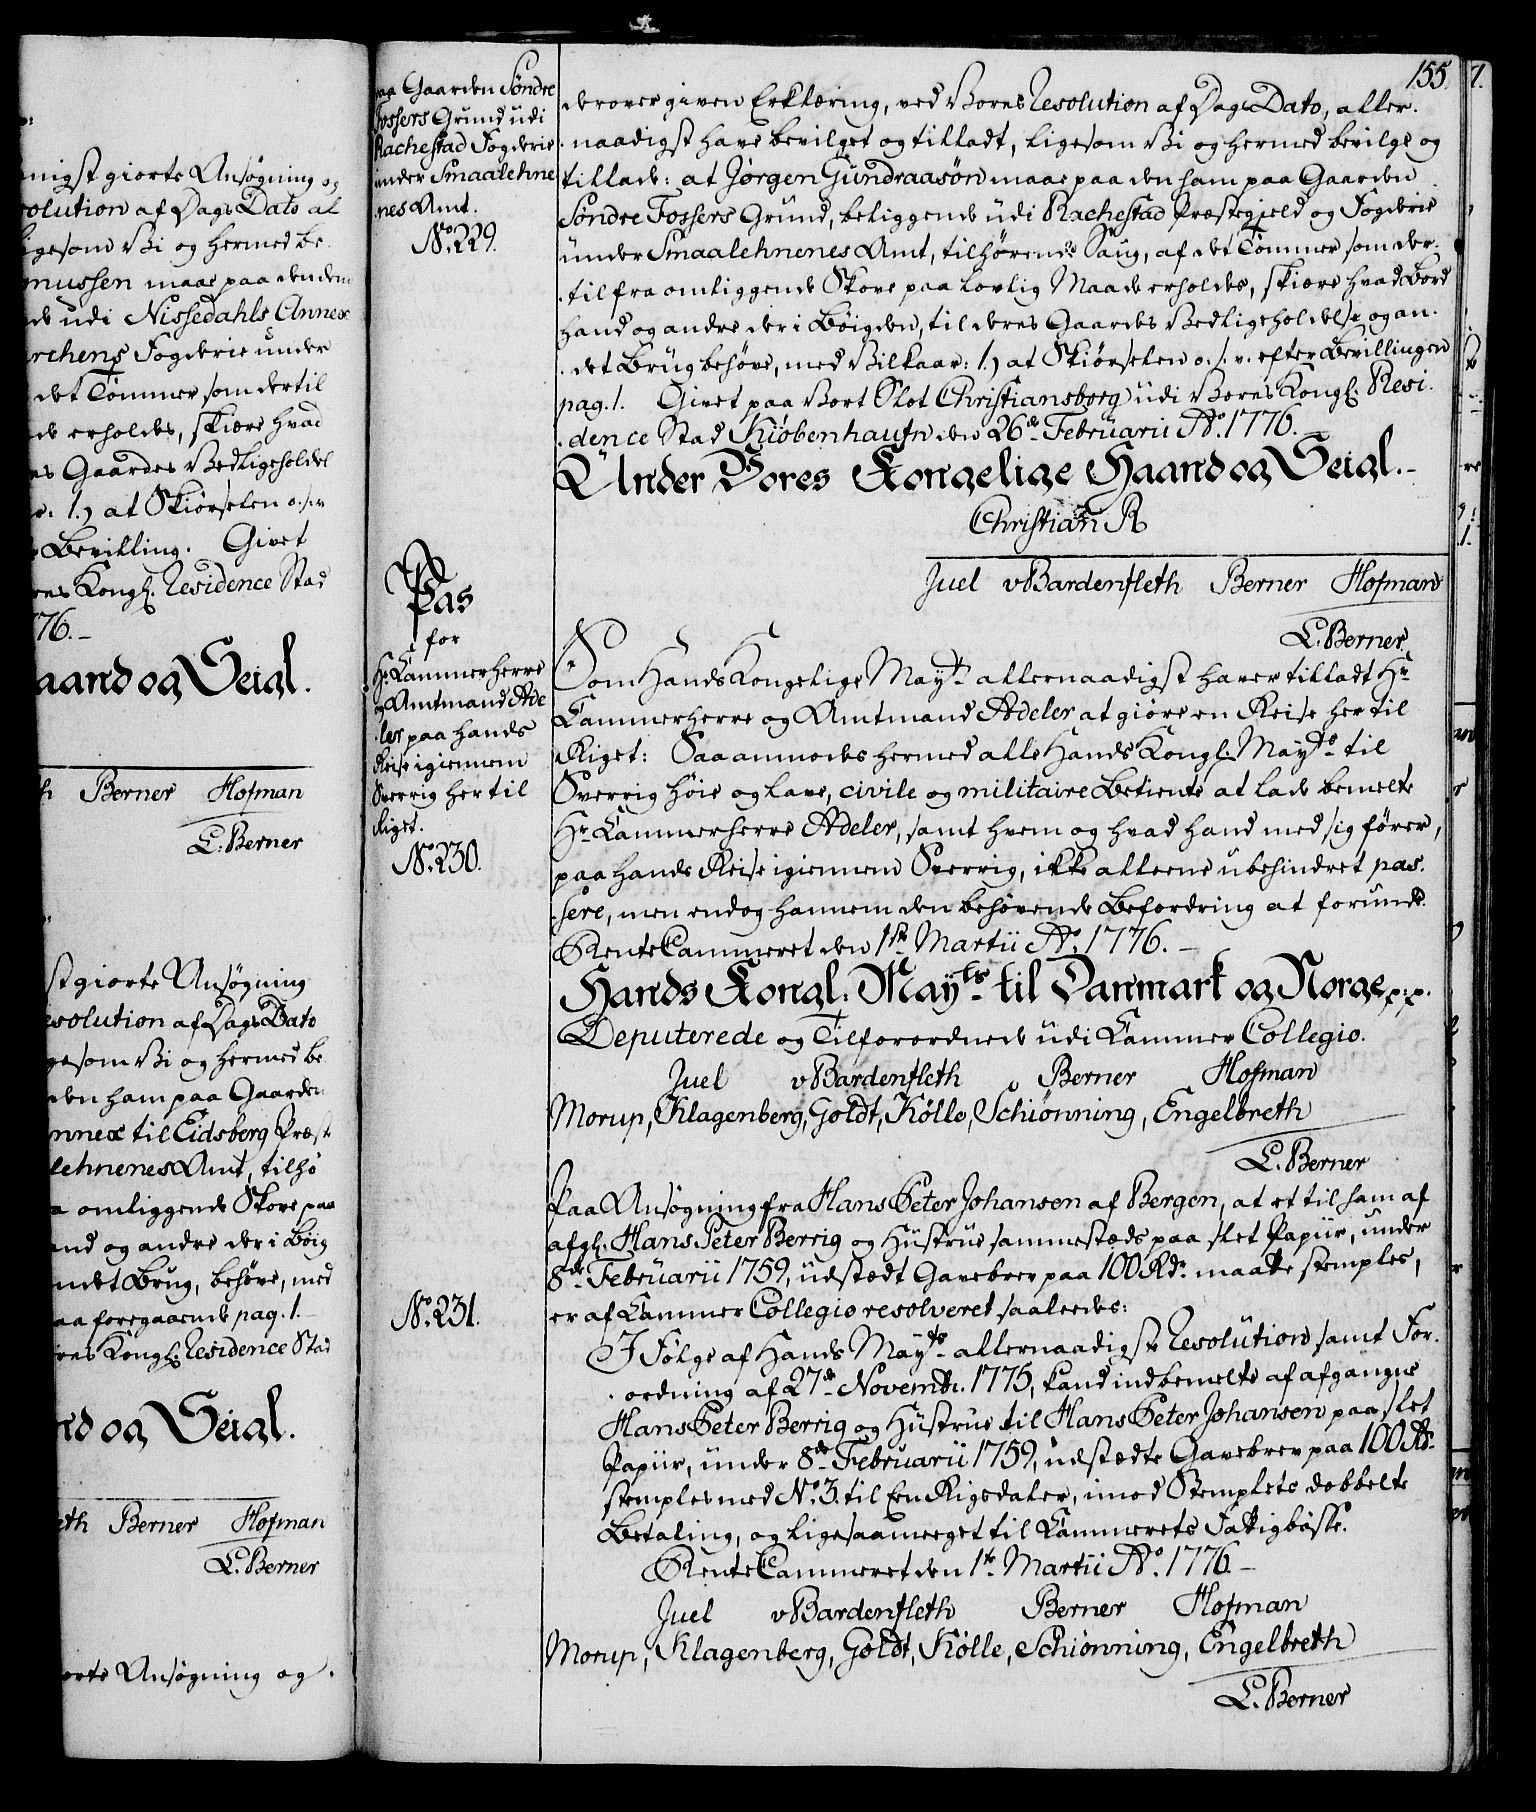 nigst giorte Ansøgning og
solution af Dags Dato al
igesom Vi og hermed be-
mussen maae paa den dem
de udi Nissedahls Annex
Fogderie under
det Tømmer som dertil
de erholdes, skiære hvad
es Gaardes Vedligeholdel
1.) at Skiørselen o.s.v.
Bevilling. Givet
res Kongl. Residence Stad
76.
aand og Seigl.
h Berner Hofman
L. Berner
st giorte Ansøgning
esolution af Dags Dato
gesom Vi og hermed be
den ham paa Gaarden
nnex til Eidsberg Præst
lehnenes Amt, tilhø
a omliggende Skove paa
and og andre der i Bøig
ndet Brug, behøve, med
aa foregaaende pag. 1.
ores Kongl. Residence Stad
nd og Seigl.
eth Berner Hofman
L. Berner
orte Ansøgning og
paa Gaarden Søndre
Fossers Grund udi
Rachestad Fogderie
under Smaalehne
nes Amt.
No. 229.
155.
derover given Erklæring, ved Vores Resolution af Dags Dato, aller-
naadigst have bevilget og tilladt, ligesom Vi og hermed bevilge og
tillade: at Jørgen Gundraasøn maae paa den ham paa Gaarden
Søndre Fossers Grund, beliggende udi Rachestad Præstegield og Fogderie
under Smaalehnenes Amt, tilhørende Saug, af det Tømmer som der-
til fra omliggende Skove paa lovlig Maade erholdes, skiære hvad Bord
hand og andre der i Bøigden, til deres Gaardes Vedligeholdelse og an-
det Brug behøve, med Vilkaar: 1.) at Skiørselen o.s.v. efter Bevillingen
pag. 1. Givet paa Vort Slot Christiansborg udi Vores Kongl. Resi-
dence Stad Kiøbenhaufn den 26de Februarii Ao. 1776.
Under Vores Kongelige Haand og Seigl.
Christian R
Juel vBardenfleth Berner Hofman
L. Berner
Pas
for
Hr. Cammerherre
og Amtmand Ade
ler paa hands
Reise igiennem
Sverrig her til
Riget.
No. 230.
Som Hands Kongelige Mayt. allernaadigst haver tilladt Hr.
Cammerherre og Amtmand Adeler at giøre en Reise her til
Riget: Saa anmodes hermed alle Hands Kongl. Mayts. til
Sverrig høie og lave, civile og militaire Betiente at lade bemelte
Hr. Cammerherre Adeler, samt hvem og hvad hand med sig fører,
paa hands Reise igiennem Sverrig, ikke alleene ubehindret pas-
sere, men endog hannem den behøvende Befordring at forunde.
RenteCammeret den 1ste Martii Ao. 1776.
Hands Kongl. Mayts. til Danmark og Norge p.p.
Deputerede og Tilforordnede udi Cammer Collegio.
Juel vBardenfleth Berner Hofman
Morup, Klagenberg, Goldt, Kølle, Schiønning, Engelbreth
L. Berner
No. 231.
Paa Ansøgning fra Hans Peter Johansen af Bergen, at et til ham af
afgl. Hans Peter Berrig og Hustrue sammestæds paa slet Papiir, under
8de Februarii 1759, udstædt Gavebrev paa 100 Rdr. maatte stemples,
er af Cammer Collegio resolveret saaledes:
I Følge af Hands Mayts. allernaadigste Resolution samt For-
ordning af 27de Novembr. 1775, kand indbemelte af afgangne
Hans Peter Berrig og Hustrue til Hans Peter Johansen paa slet
Papiir, under 8de Februarii 1759, udstædte Gavebrev paa 100 Rdr.
stemples med No. 3. til Een Rigsdaler, imod Stemplets dobbelte
Betaling, og ligesaameeget til Cammerets Fattigbøsse.
RenteCammeret den 1te Martii Ao. 1776.
Juel vBardenfleth Berner Hofman
Morup, Klagenberg, Goldt, Kølle, Schiønning, Engelbreth
L. Berner